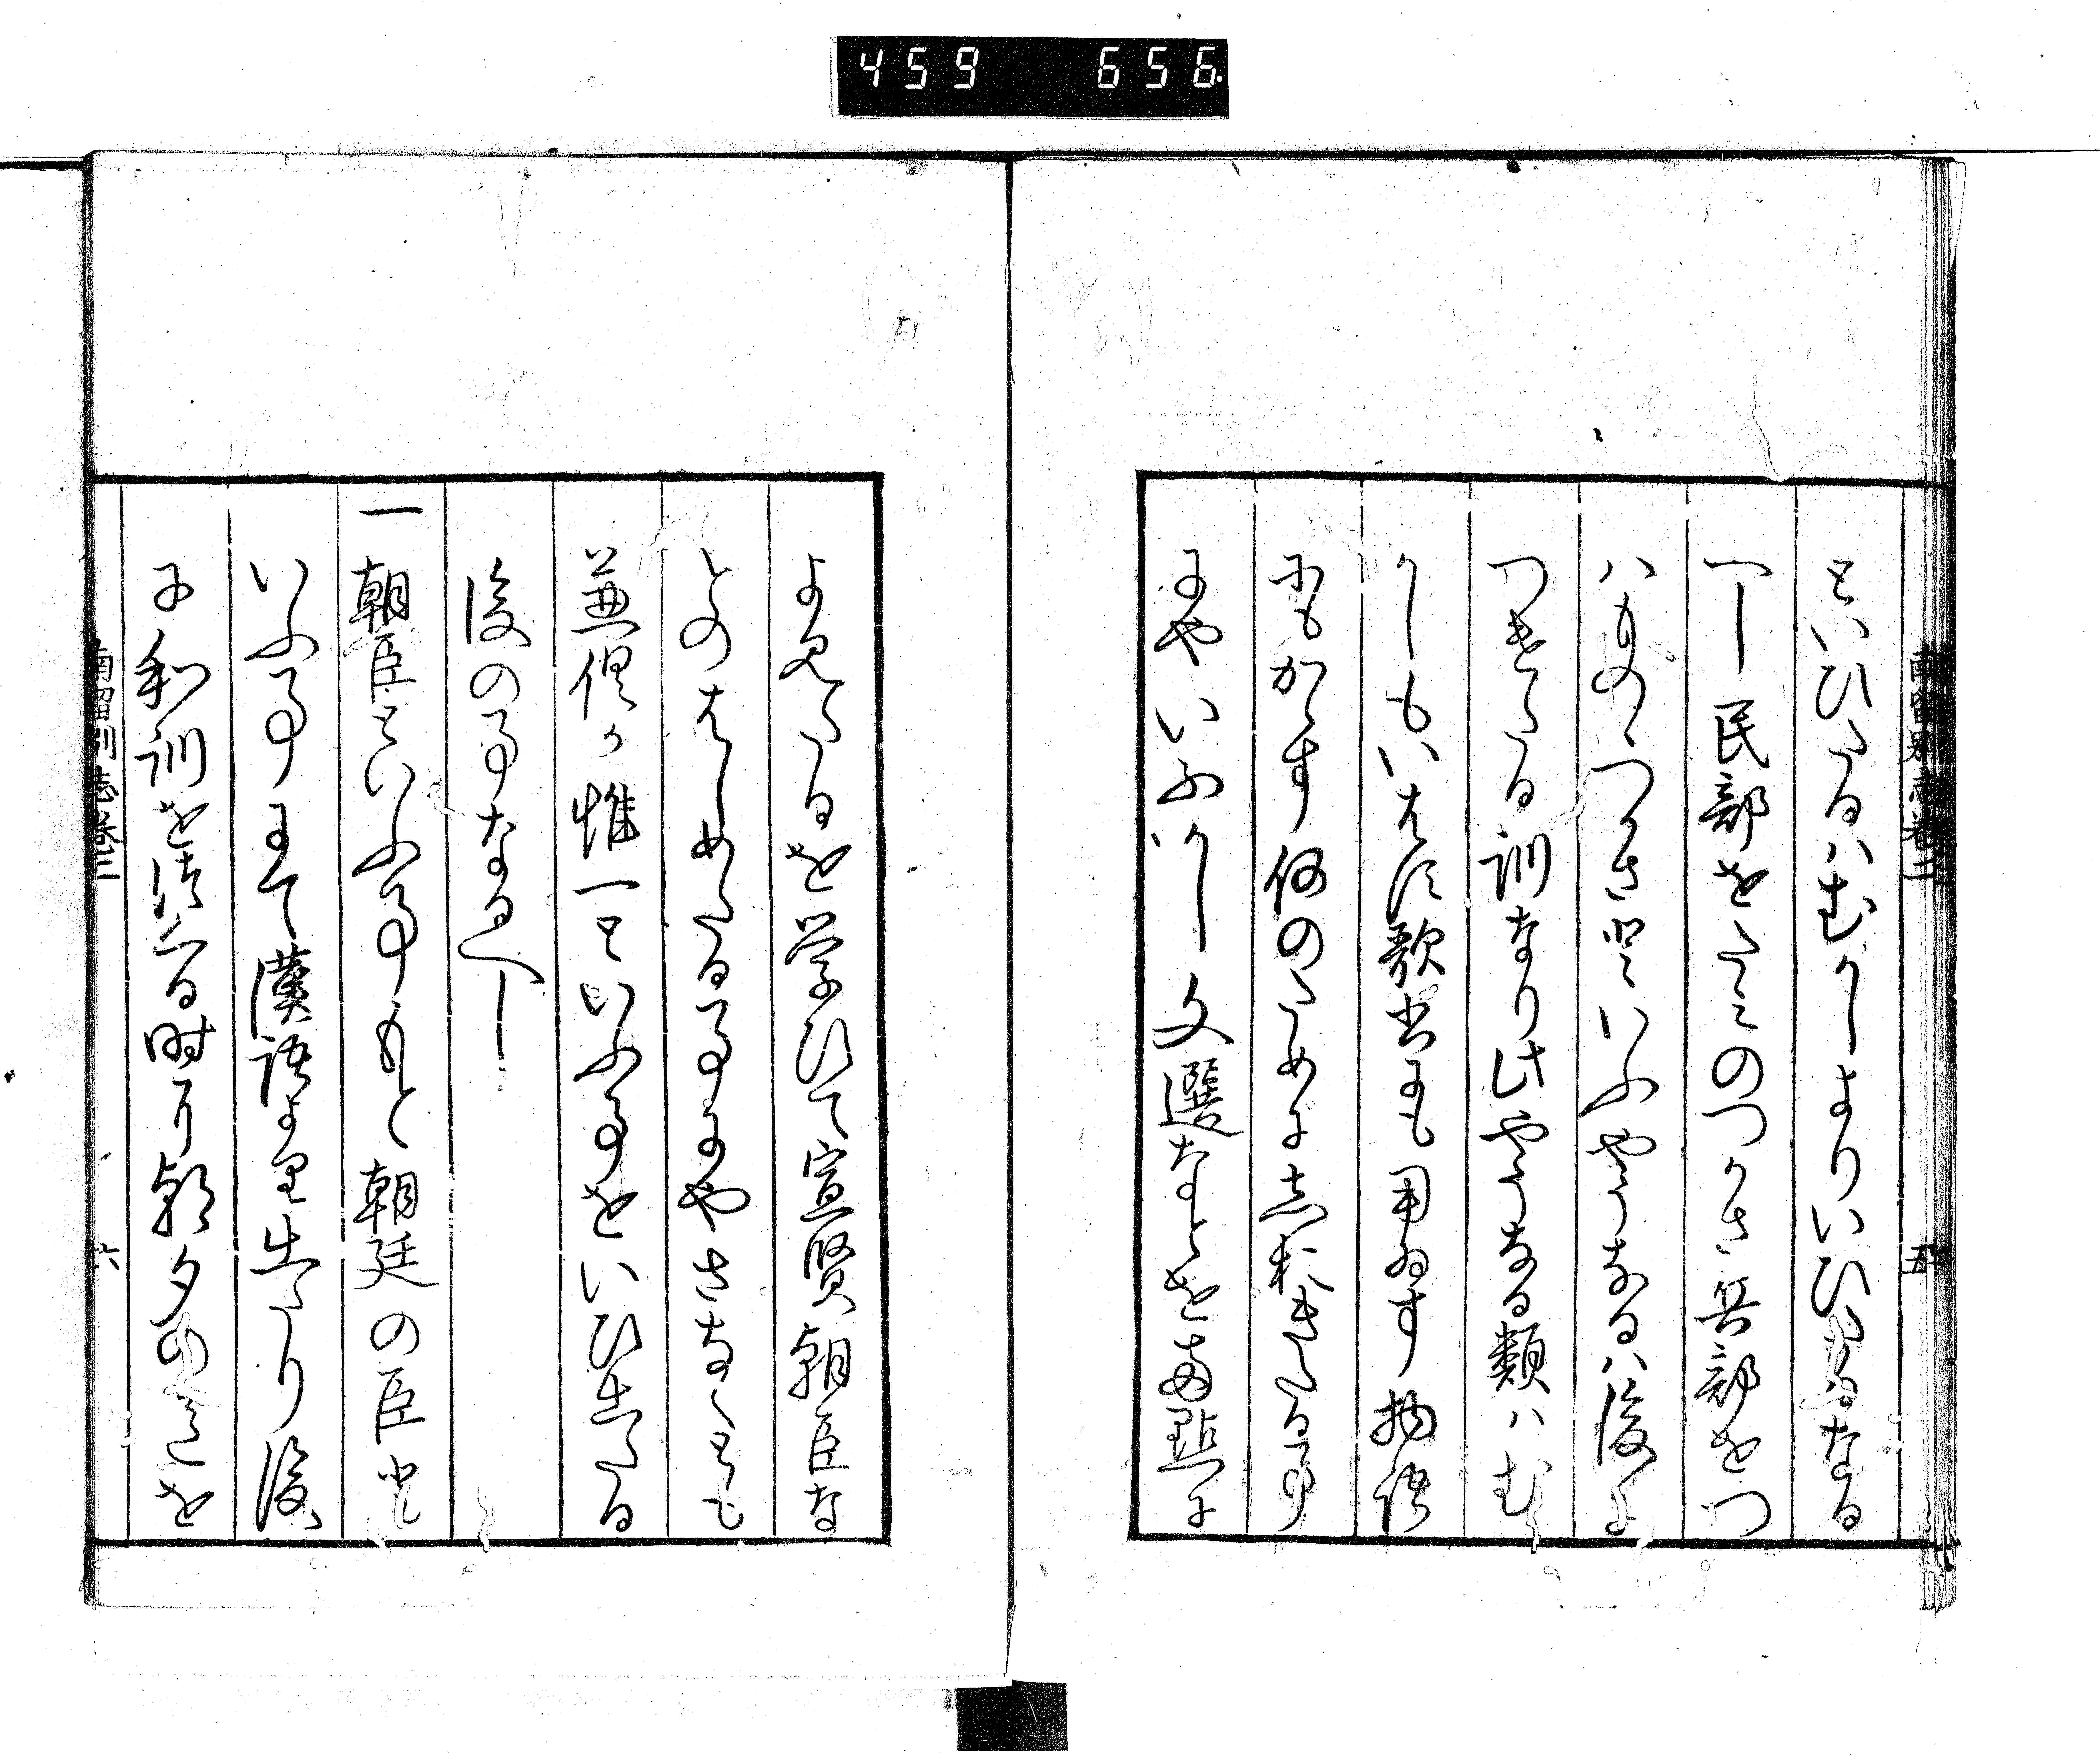 459 656
南留別志巻二
五
といひたるハむかしよりいひたるなる
へし民部をたみのつかさ兵部をつ
ハものゝつかさといふやうなるハ後に
つきたる訓なり此やうなる類ハむ
かしもいはす歌書にも用ゐす物語
にもかゝす何のためにこしらへおきたる事
にやいふかし文選なとを両點に
よみたるを学ひて宣賢朝臣な
とのはしめたる事にやさなくとも
兼倶か惟一といふ事をいひ出たる
後の事なるへし
一朝臣といふ事もと朝廷の臣と
いふ事にて漢語より出たり後
に和訓を付る時より朝夕のことを
南留別志巻二
六